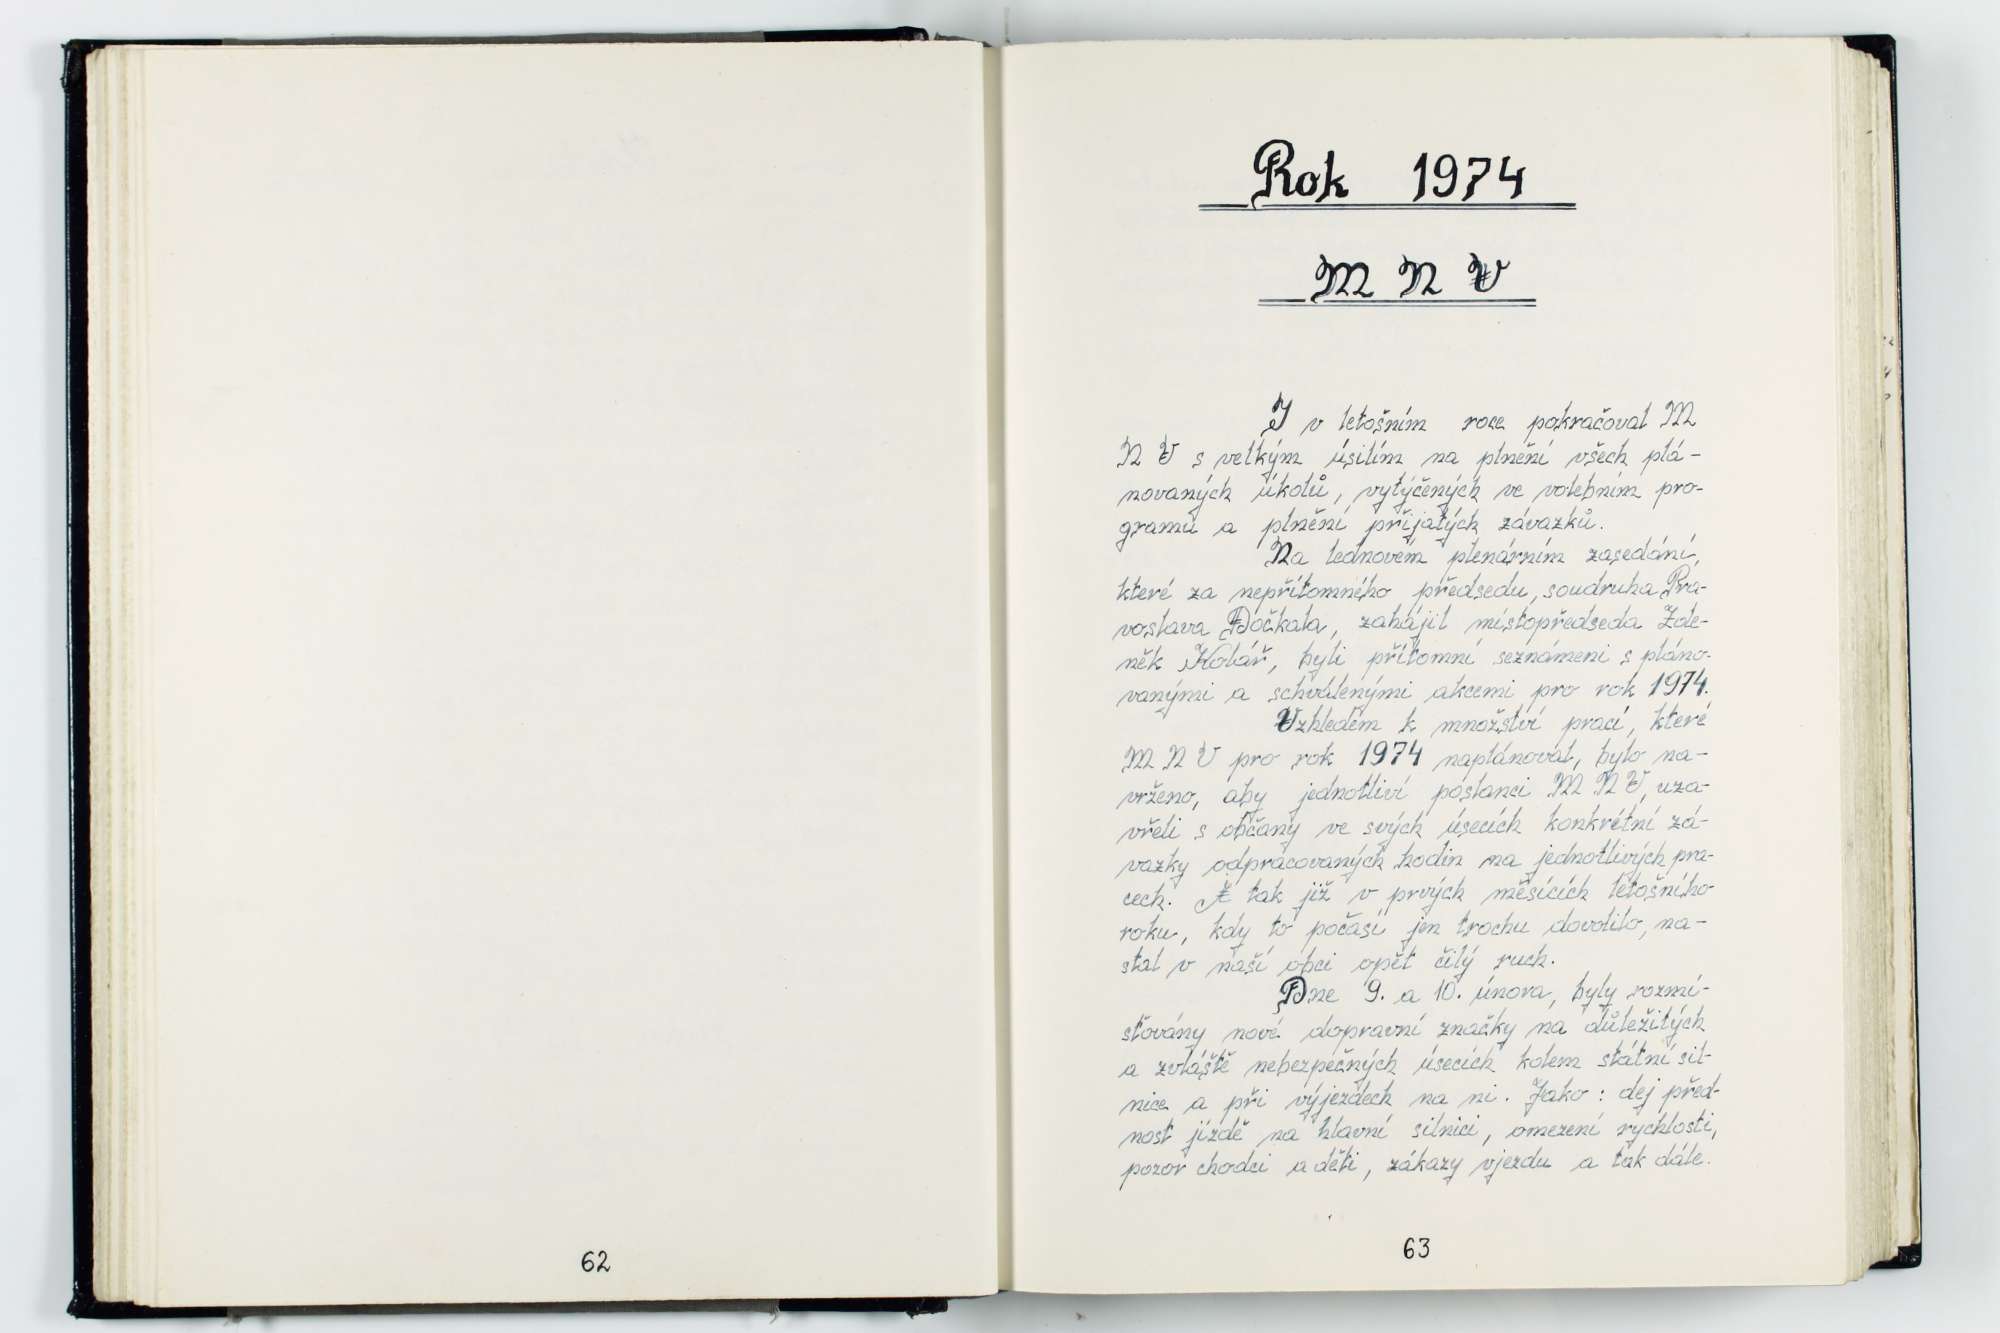 Rok 1974
M N V
I v letošním roce pokračoval M
N V s velkým úsilím na plnění všech plá-
novaných úkolů, vytýčených ve volebním pro-
gramu a plnění přijatých závazků.
Na lednovém plenárním zasedání,
které za nepřítomného předsedu, soudruha Pra-
voslava Dočkala, zahájil místopředseda Zde-
něk Kolář, byli přítomní seznámeni s pláno-
vanými a schválenými akcemi pro rok 1974.
Vzhledem k množství prací, které
M N V pro rok 1974 naplánoval, bylo na-
vrženo, aby jednotliví poslanci M N V, uza-
vřeli s občany ve svých úsecích konkrétní zá-
vazky odpracovaných hodin na jednotlivých pra-
cech. A tak již v prvých měsících letošního
roku, kdy to počasí jen trochu dovolilo, na-
stal v naší obci opět čilý ruch.
Dne 9. a 10. února, byly rozmí-
sťovány nové dopravní značky na důležitých
a zvláště nebezpečných úsecích kolem státní sil-
nice a při výjezdech na ni. Jako : dej před-
nost jízdě na hlavní silnici, omezení rychlosti,
pozor chodci a děti, zákazy vjezdu a tak dále.
62
63